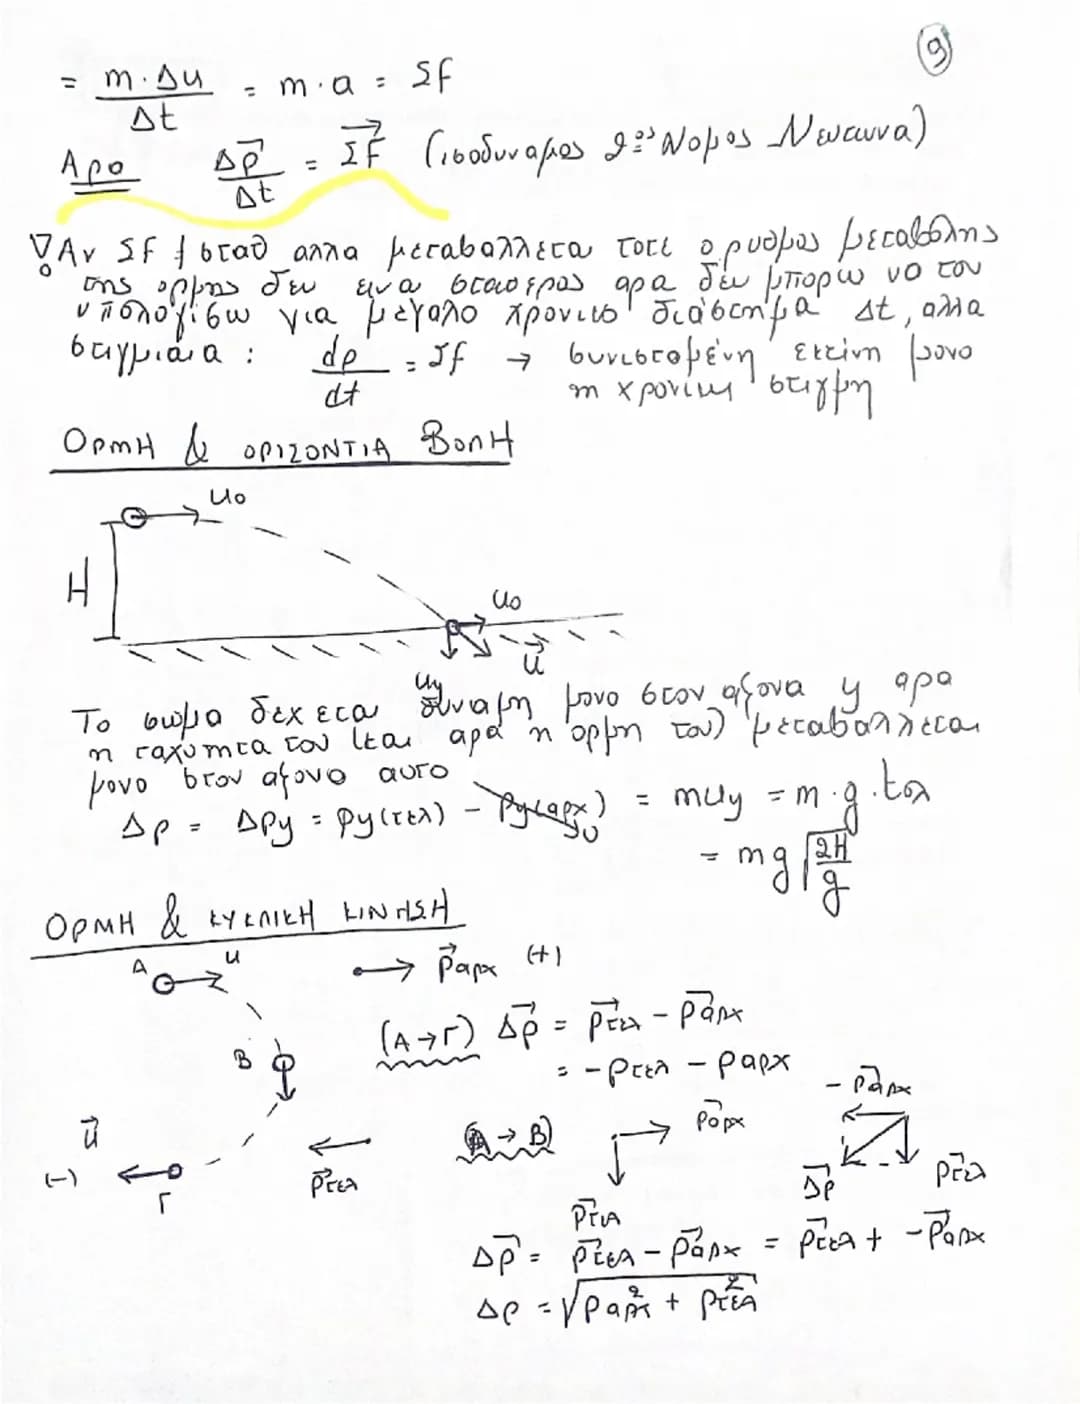 9
= m·Δu / Δt = m·a = Σf
Αρα Δp⃗ / Δt = ΣF⃗ (ισοδυναμος 2ος Νομος Νευτωνα)
Αν Σf ≠ σταθ αλλα μεταβαλλεται τοτε ο ρυθμος μεταβολης
της ορμης δεν ειναι σταθερος αρα δεν μπορω να τον
υπολογισω για μεγαλο χρονικο διάστημα Δt, αλλα
στιγμιαια : dp / dt = Σf → συνισταμένη εκείνη μονο
τη χρονικη στιγμη
ΟΡΜΗ & ΟΡΙΖΟΝΤΙΑ ΒΟΛΗ
u₀
H
u₀
u⃗
uy
Το σωμα δεχεται δυναμη μονο στον αξονα y αρα
η ταχυτητα του (και αρα η ορμη του) μεταβαλλεται
μονο στον αξονα αυτο
Δp = Δpy = py(τελ) - py(αρχ) 0 = muy = m·g·tολ
= mg √(2H/g)
ΟΡΜΗ & ΚΥΚΛΙΚΗ ΚΙΝΗΣΗ
A u → p⃗αρχ (+)
(A→Γ) Δp⃗ = p⃗τελ - p⃗αρχ
= -pτελ - pαρχ
B
u⃗
(-)
Γ
p⃗τελ
(A→B) p⃗αρχ
p⃗τελ
-p⃗αρχ
Δp⃗ p⃗τελ
Δp⃗ = p⃗τελ - p⃗αρχ = p⃗τελ + -p⃗αρχ
Δp = √(pαρχ² + pτελ²)